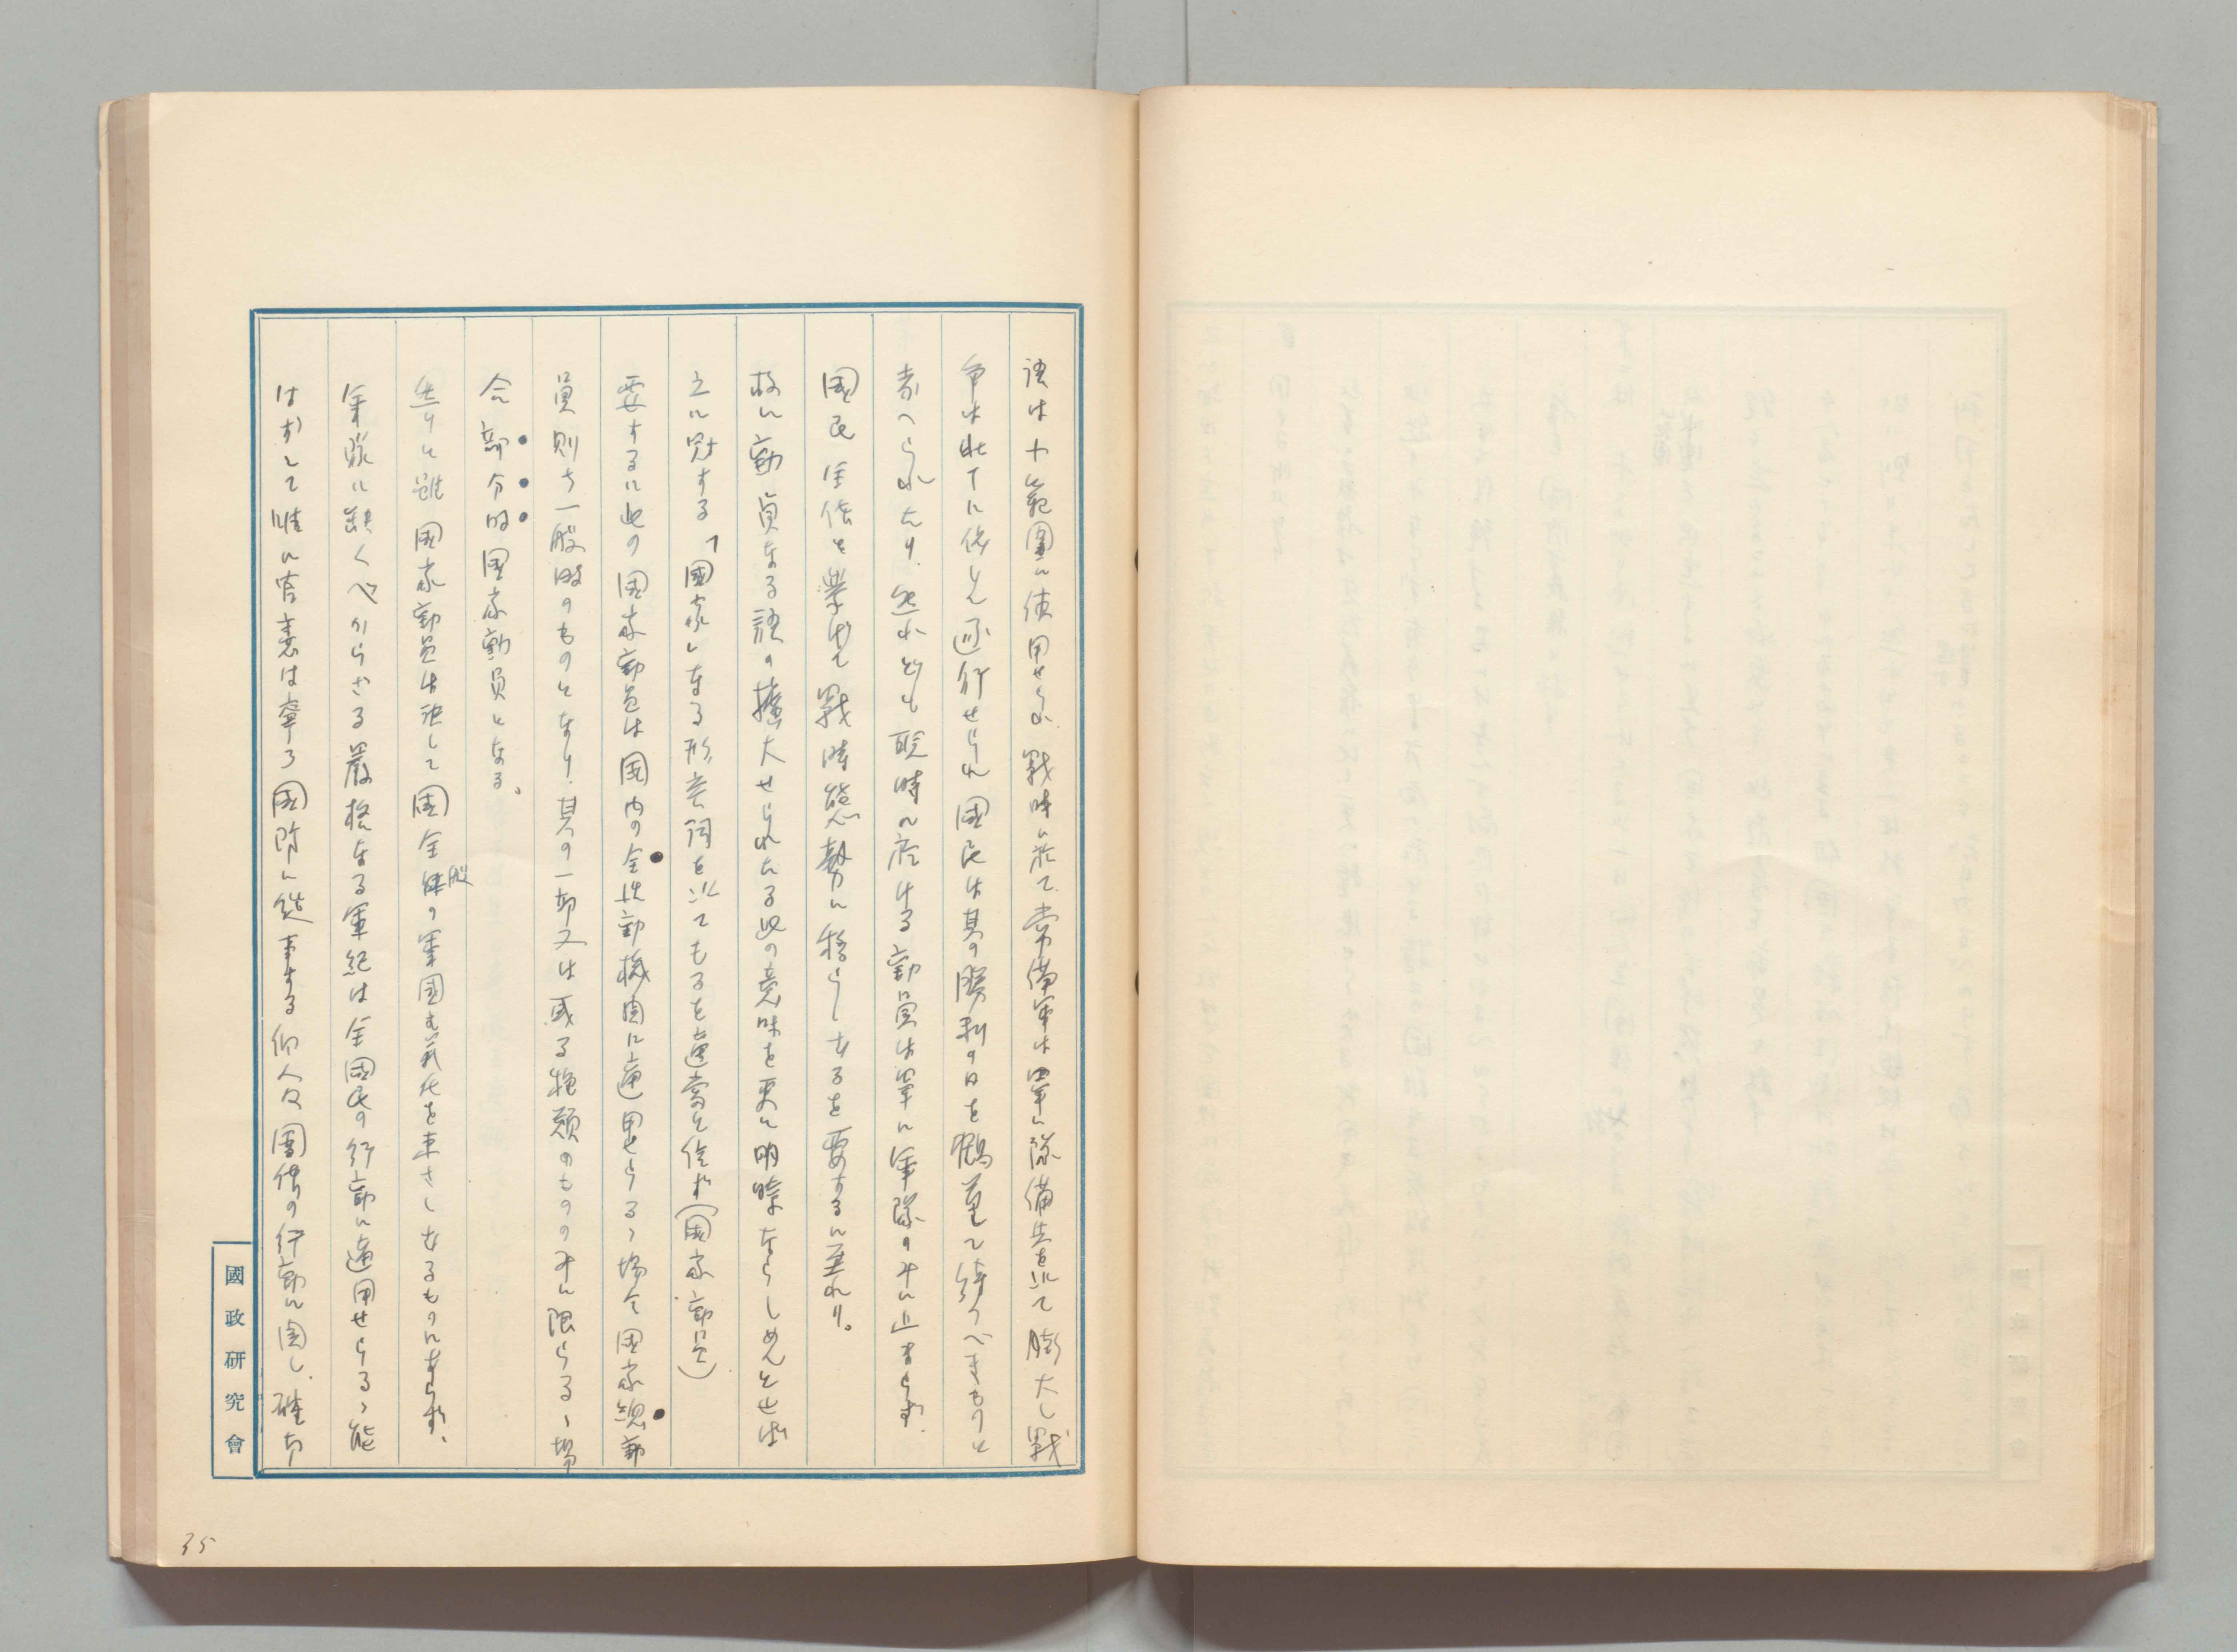 語は十範囲に使用せらる 戦時に於て常備軍は単に隊備兵を以て膨大し戦
争は此下に依り人遂行せられ国民は其の勝利の日を鶴首して待つべきものと
考へられたり. 然れども現時に於ける動員は単に軍隊のみに止まらず.
国民全体を挙げて戦時態勢に移らしむるを要するに至れり。
故に動員なる語の擴大せられたる此の意味を更に明瞭ならしめんとせば
之に冠する「國家」なる形容詞を以てするを適当と信ず(國家動員)
要するに此の国家動員は国内の全活動機関に適用せらるゝ場合国家総動
員則ち一般的のものとなり. 其の一部又は或る種類のもののみに限らるゝ場
合部分的国家動員となる。
然りと雖国家動員は決して国全般の軍国主義化を来さしむるものにあらず、
軍隊に缺くべからざる厳格なる軍紀は全國民の行動に適用せらるゝ能
はずして唯に官憲は章ろ国防に従事する個人及團体の行動に関し. 確ち
國政研究會
35